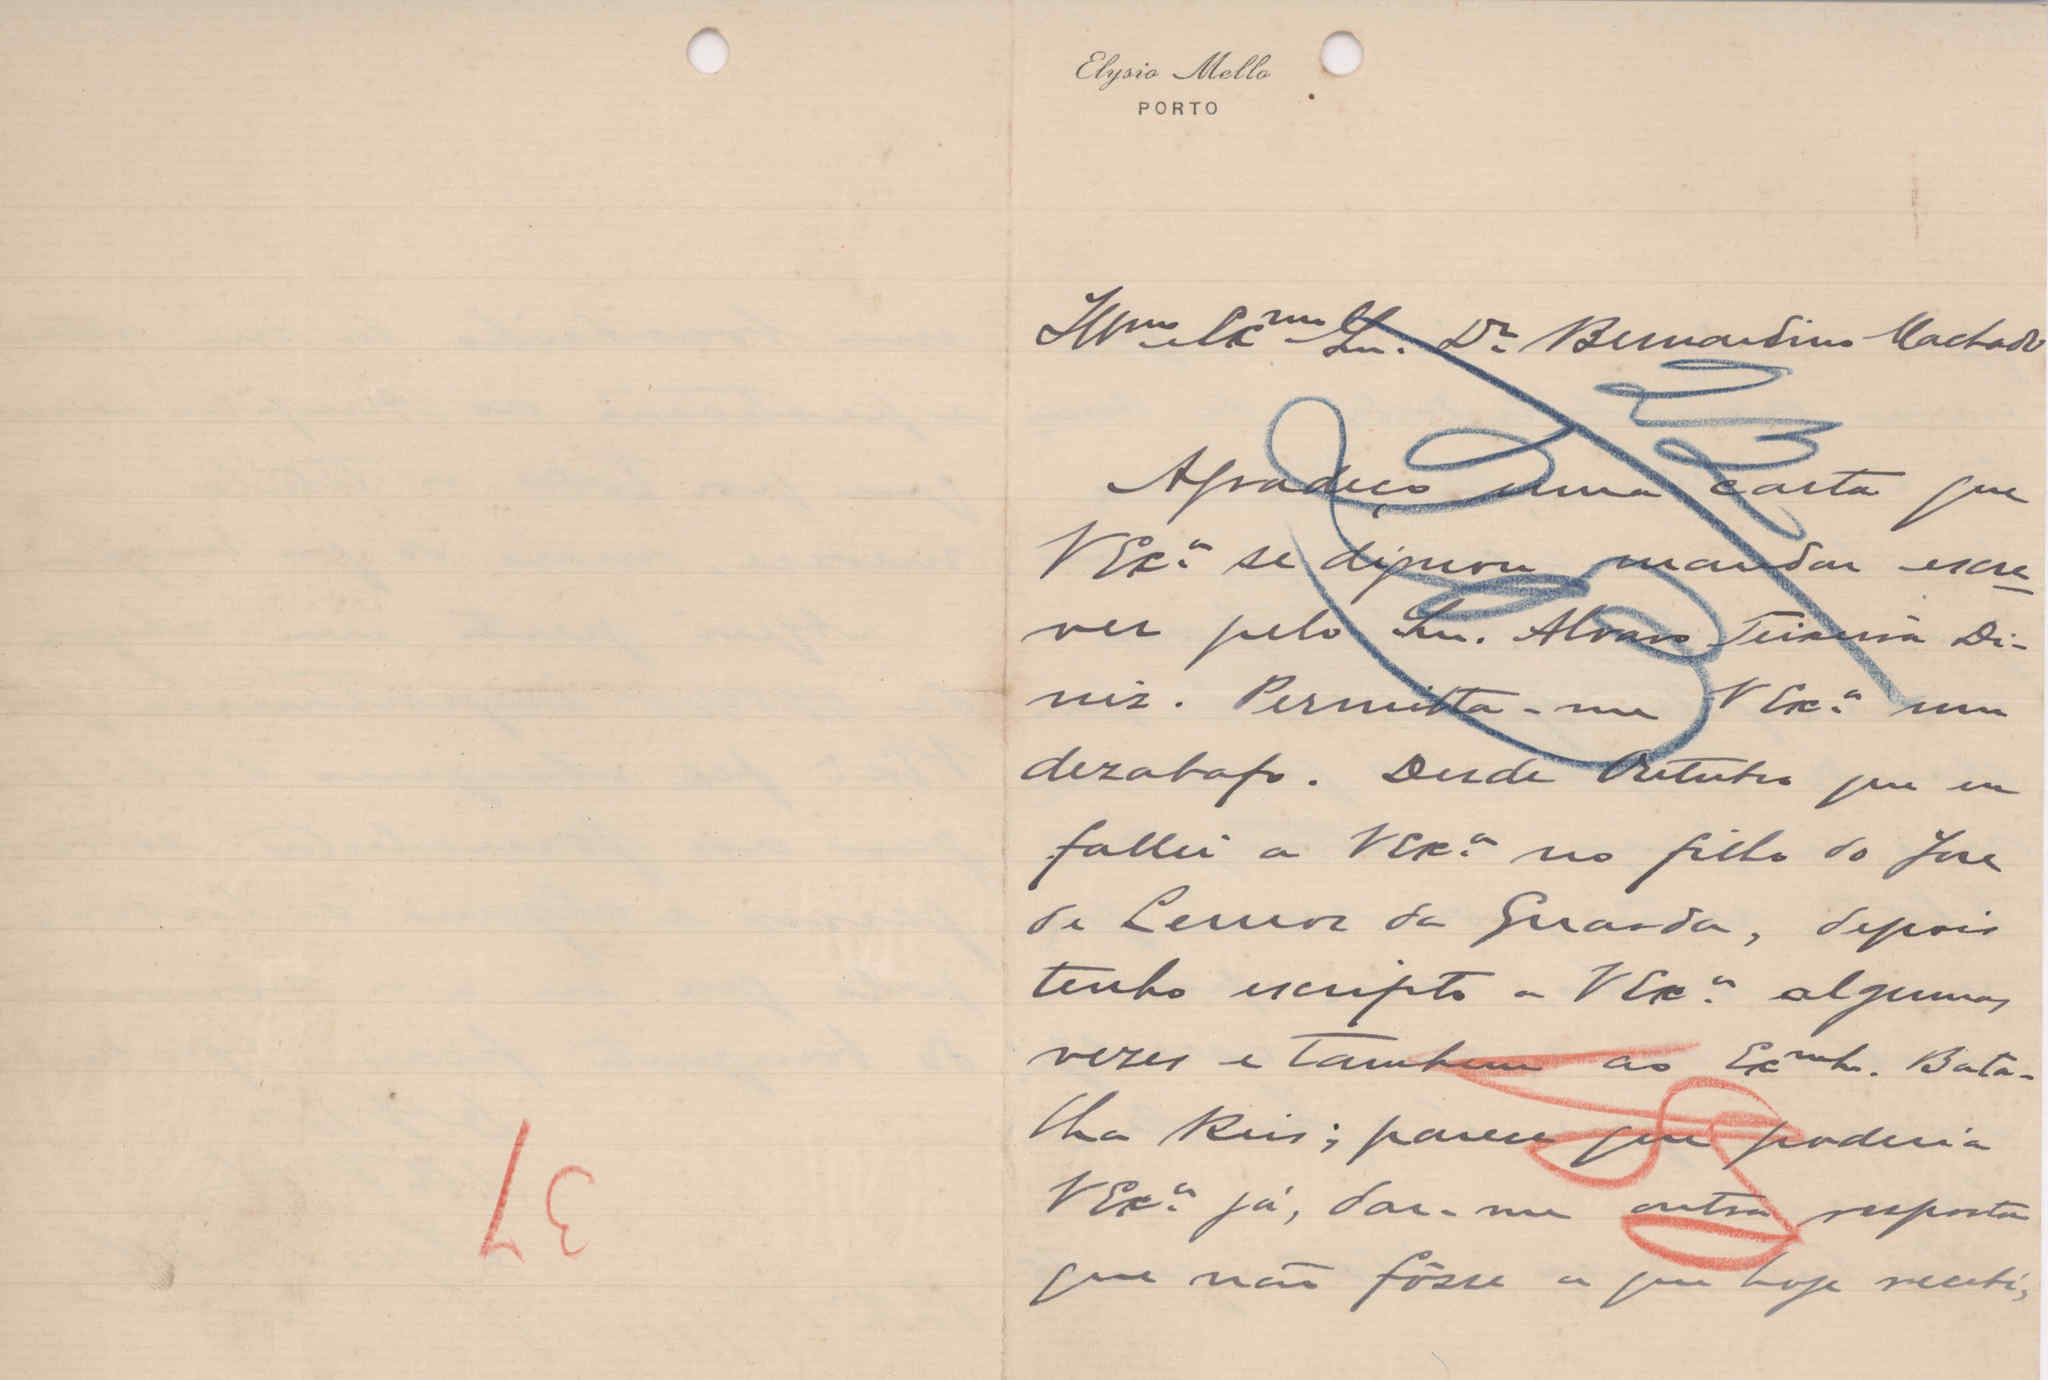 Elysio Mello
PORTO
Illmo e Exmo Snr. Dr. Bernardino Machado
Agradeço uma carta que
V Exa. se dignou mandar escre
ver pelo Snr. Alvaro Teixeira Di-
niz. Permitta-me V Exa. um
dezabafo. Desde Outubro que eu
fallei a V Exa. no filho do José
de Lemos da Guarda, depois
tenho escripto a V Exa. algumas
vezes e tambem ao Exmo Snr. Bata-
lha Reis; parece que poderia
V Exa. já, dar-me outra resposta
que não fôsse a que hoje recebi,
37